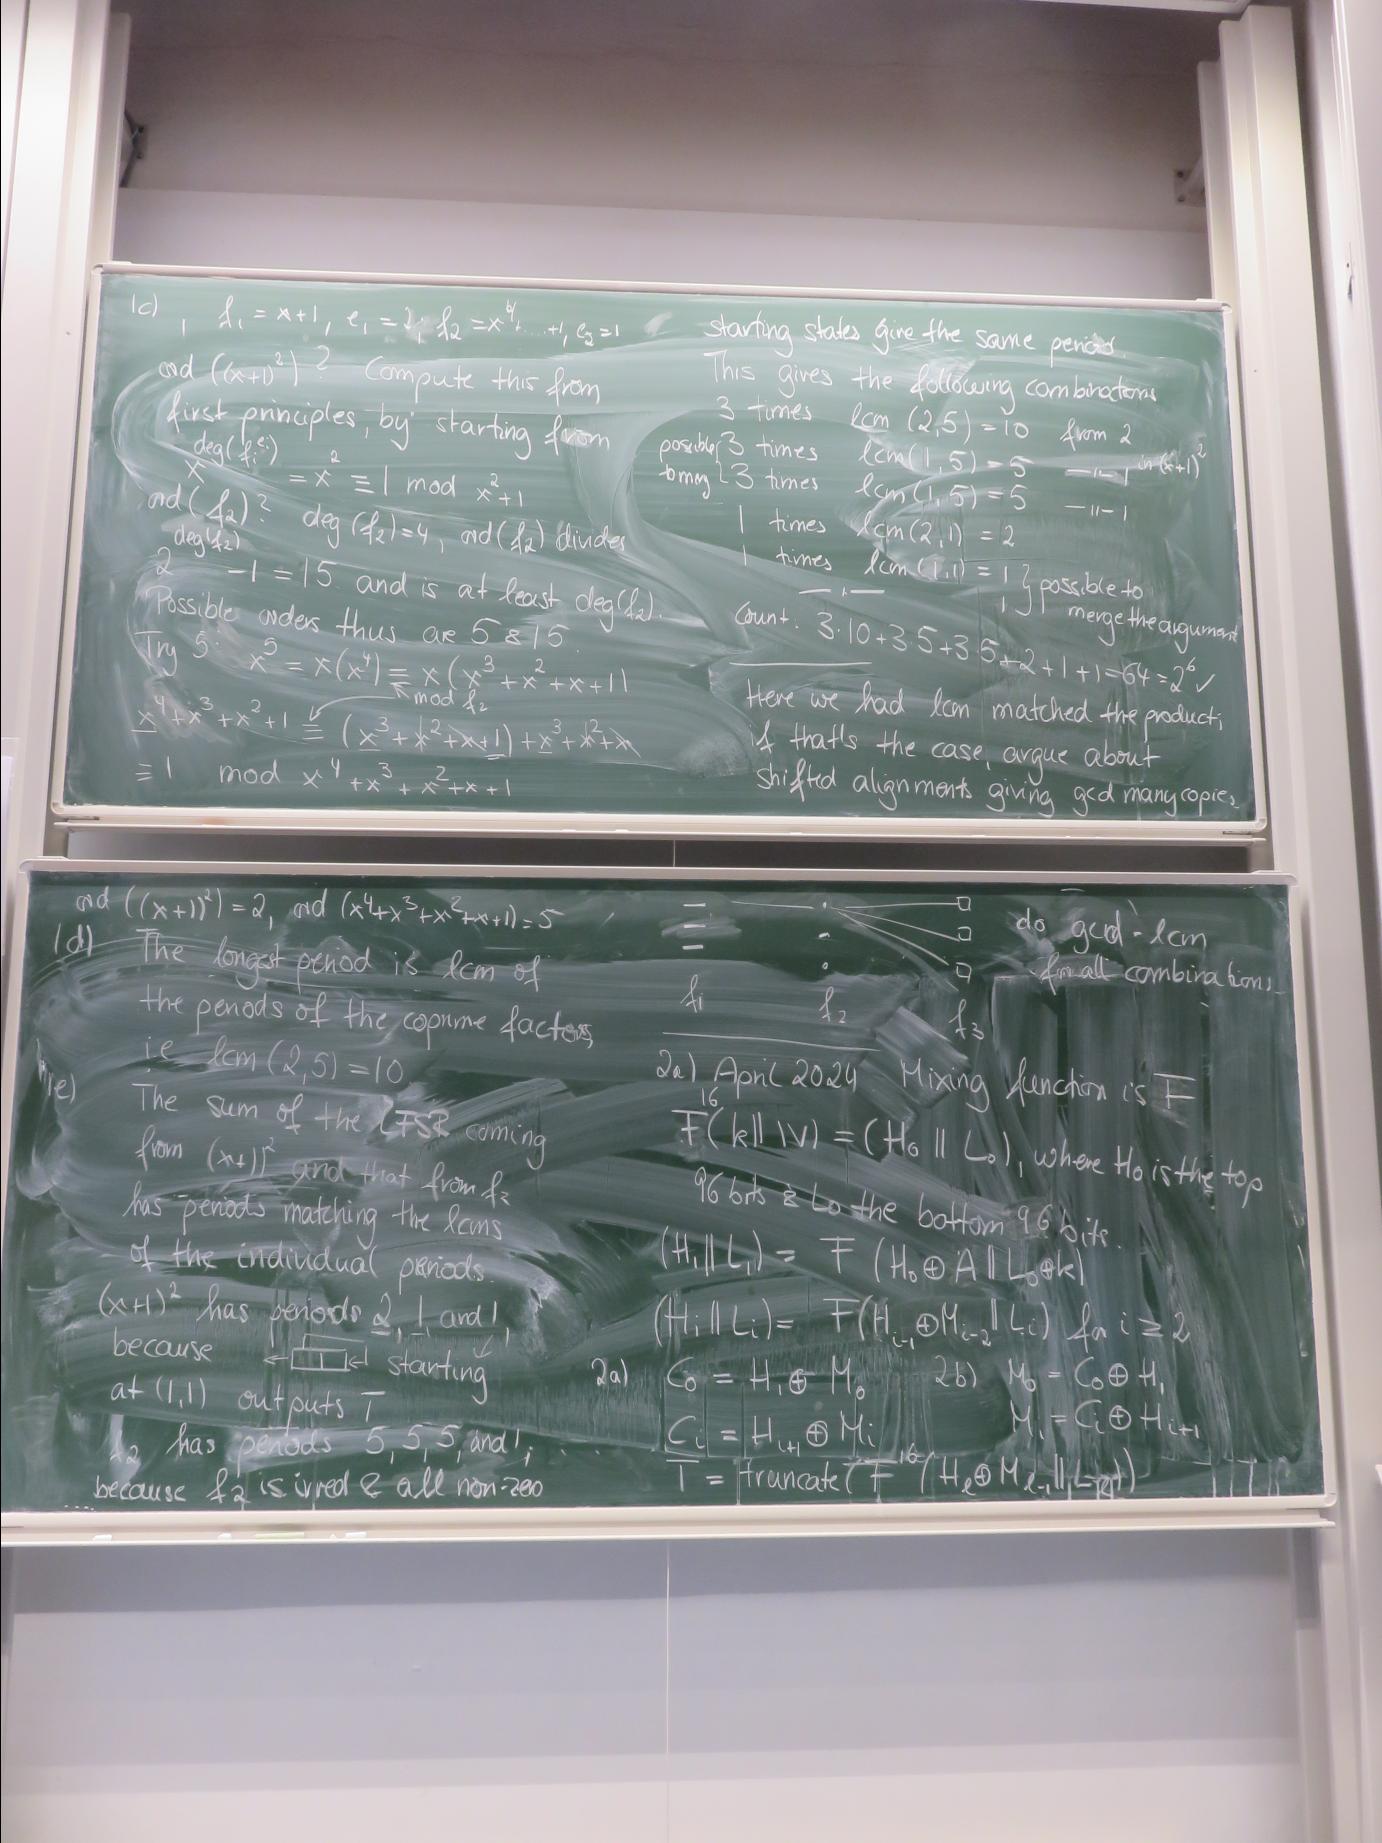 1c) f₁ = x+1, e₁ = 2, f₂ = x⁴+...+1, e₂=1
ord ((x+1)²)? Compute this from
first principles, by starting from
x^deg(f_i^e_i) = x² ≡ 1 mod x²+1
ord(f₂)? deg(f₂)=4, ord(f₂) divides
2^deg(f₂) -1 = 15 and is at least deg(f₂).
Possible orders thus are 5 & 15.
Try 5: x⁵ = x(x⁴) ≡ x(x³+x²+x+1)
mod f₂
x⁴+x³+x²+1 ≡ (x³+x²+x+1)+x³+x²+x
≡ 1 mod x⁴+x³+x²+x+1
starting states give the same period.
This gives the following combinations
3 times lcm (2,5) = 10 from 2
possible 3 times lcm(1,5) = 5 —"— 1 in (x+1)²
to mrg 3 times lcm(1,5) = 5 —"— 1
1 times lcm(2,1) = 2
1 times lcm(1,1) = 1 } possible to
—"— 1 } merge the argument
Count: 3·10+3·5+3·5+2+1+1=64=2⁶ ✓
Here we had lcm matched the product;
if that's the case, argue about
shifted alignments giving gcd many copies.
ord ((x+1)²) = 2, ord (x⁴+x³+x²+x+1) = 5
1d) The longest period is lcm of
the periods of the coprime factors,
i.e. lcm (2,5) = 10
1e) The sum of the LFSR coming
from (x+1)² and that from f₂
has periods matching the lcms
of the individual periods.
(x+1)² has periods 2, 1 and 1,
because starting
at (1,1) outputs 1
f₂ has periods 5, 5, 5, and 1,
because f₂ is irred & all non-zero
do gcd - lcm
for all combinations.
f₁ f₂ f₃
2a) April 2024 Mixing function is F
F¹⁶(k || IV) = (H₀ || L₀), where H₀ is the top
96 bits & L₀ the bottom 96 bits.
(H₁ || L₁) = F (H₀ ⊕ A || L₀⊕k)
(H_i || L_i) = F(H_{i-1}⊕M_{i-2} || L_i) for i ≥ 2
2a) C₀ = H₁ ⊕ M₀ 2b) M₀ = C₀ ⊕ H₁
C_i = H_{i+1} ⊕ M_i M_i = C_i ⊕ H_{i+1}
T = truncate(F¹⁶(H_ℓ⊕M_{ℓ-1} ||